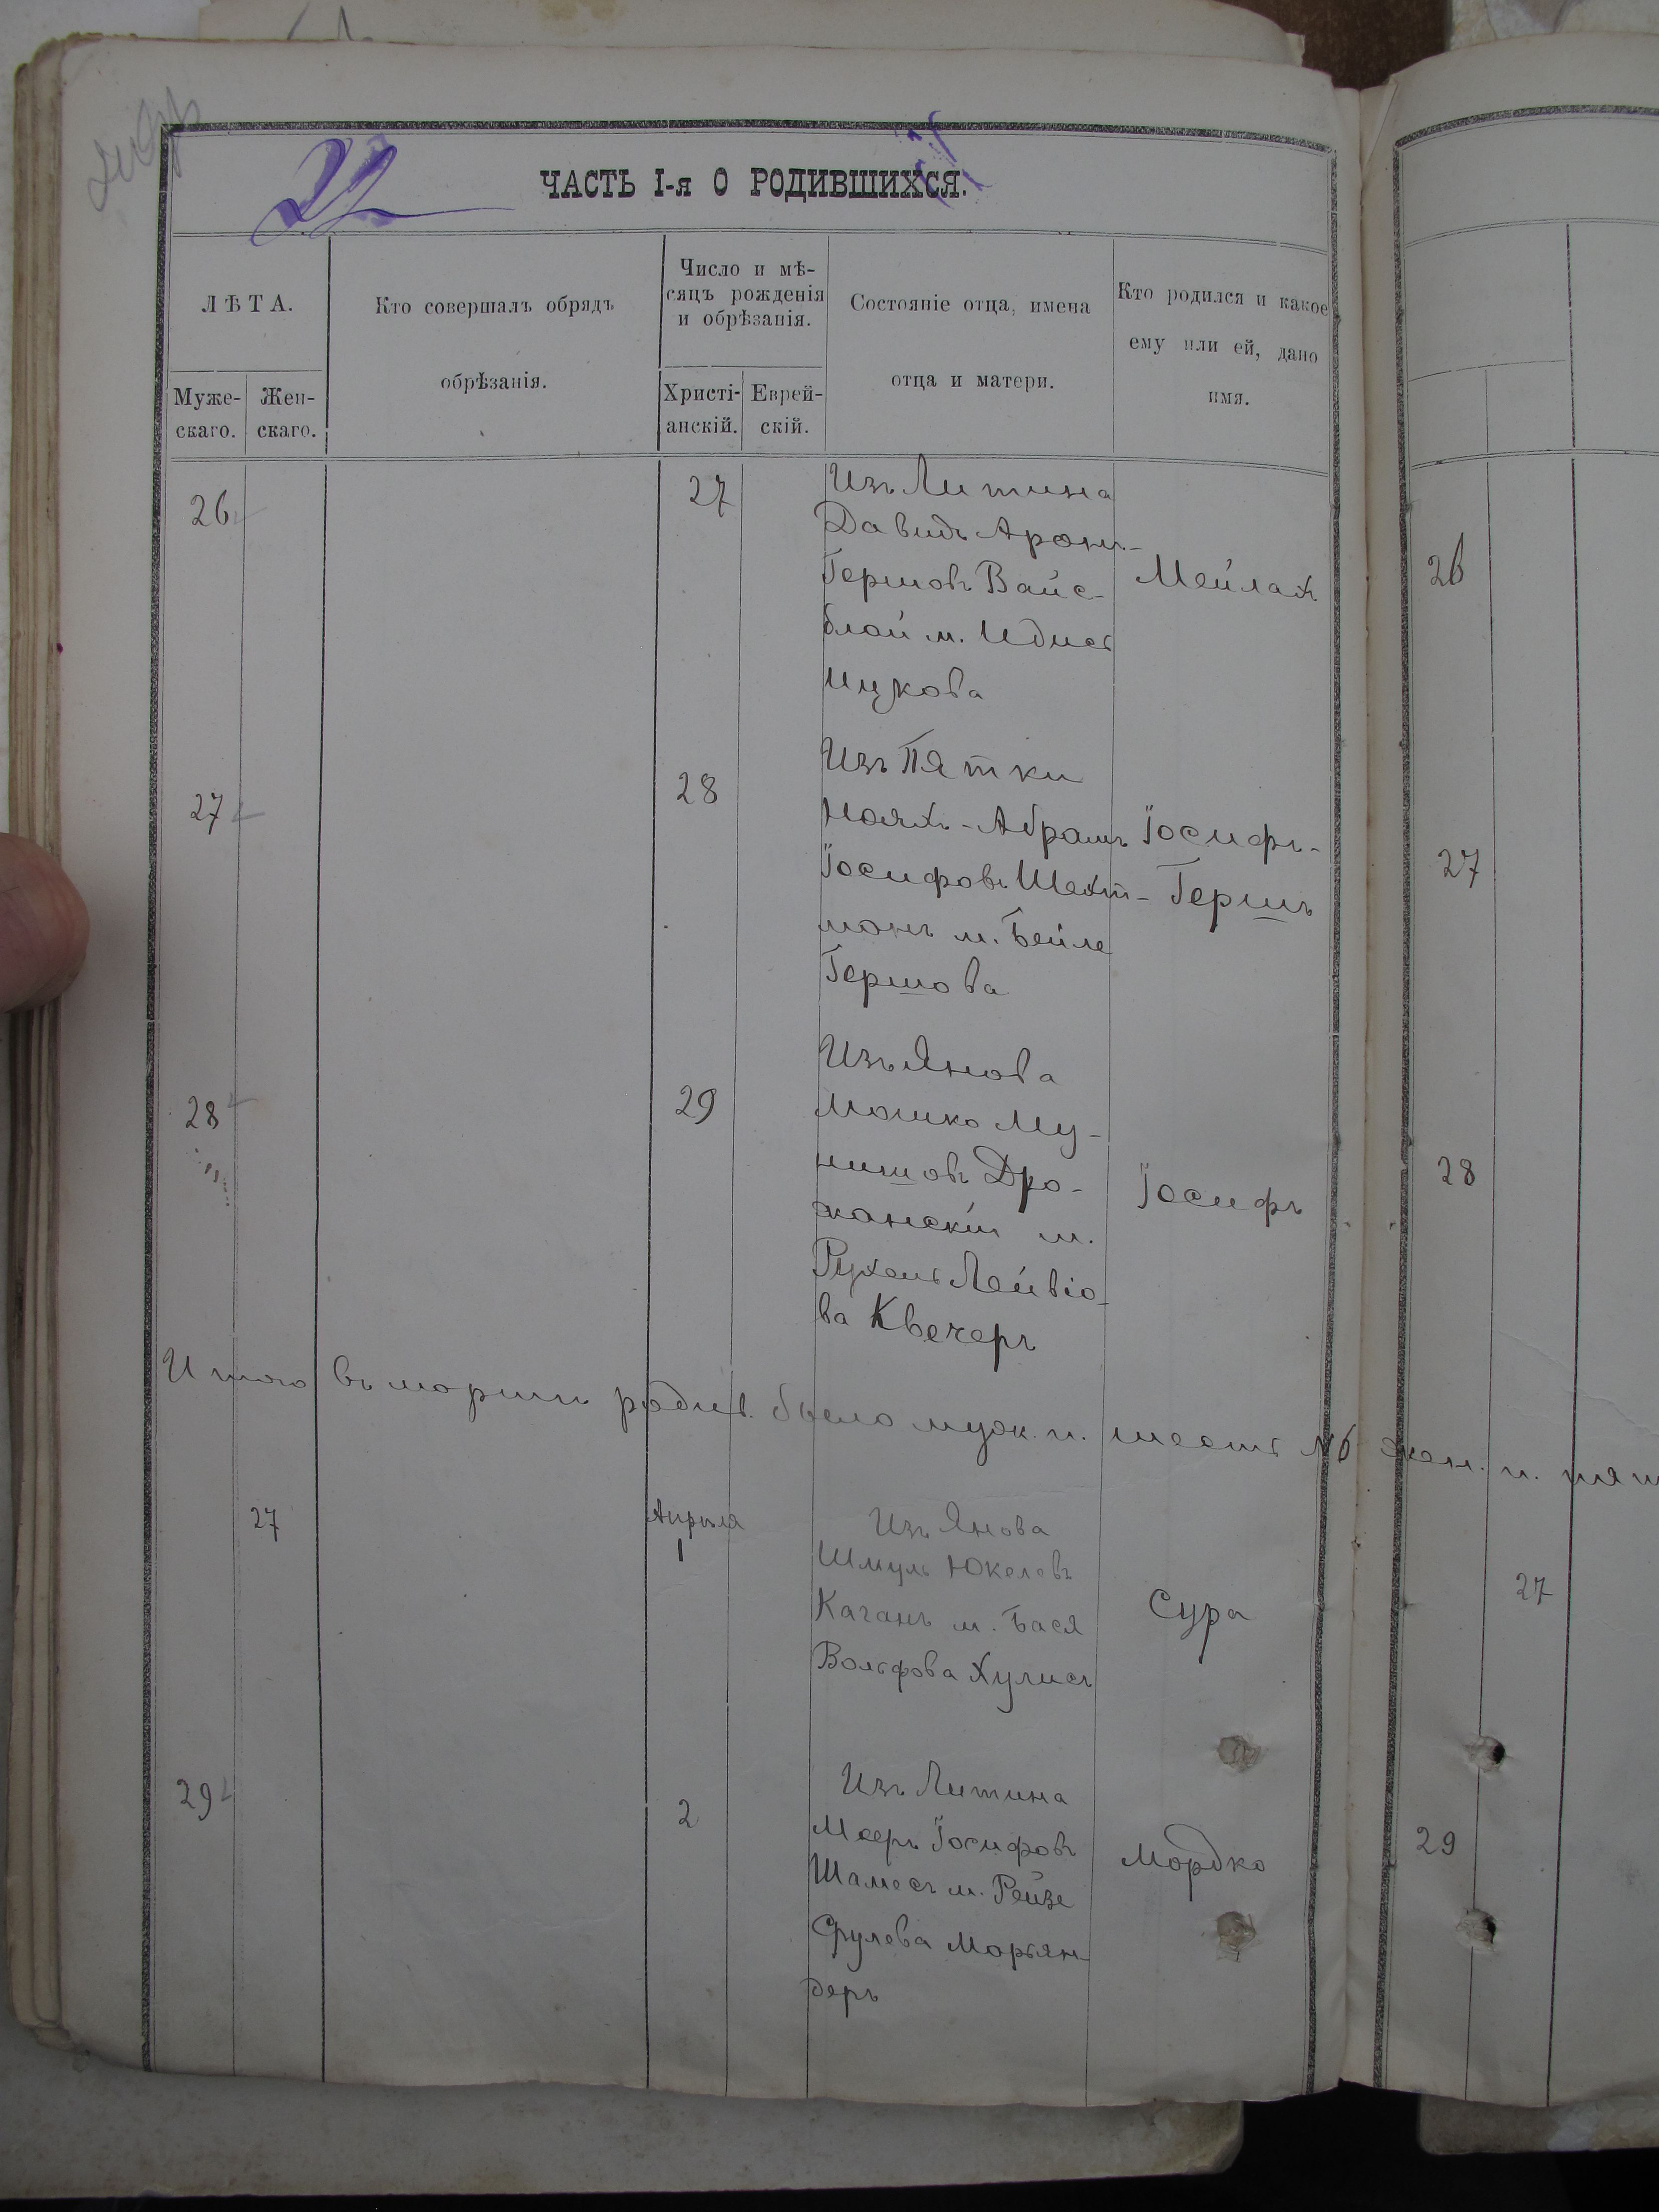 22
ЧАСТЬ I-я О РОДИВШИХСЯ.
ЛѢТА.
Муже-
скаго.
Жен-
скаго.
Кто совершалъ обрядъ
обрѣзанія.
Число и мѣ-
сяцъ рожденія
и обрѣзанія.
Христі-
анскій.
Еврей-
скій.
Состояніе отца, имена
отца и матери.
Кто родился и какое
ему или ей, дано
имя.
26
27
Изъ Литина
Давидъ Аронъ-
Гершовъ Вайс-
блай м. Идись
Ицкова
Мейлах
26
27
28
Изъ Пятки
Ноях-Абрамъ
Іосифовъ Шехт-
манъ м. Бейле
Гершова
Іосифъ-
Гершъ
27
28
29
Изъ Янова
Мошко Му-
нишовъ Дро-
жанскій м.
Рухель Лейвіо-
ва Квечеръ
Іосифъ
28
Итого въ мартѣ родив. было муж. п. шесть №6 жен. п. пят
27
Апрѣля
1
Изъ Янова
Шмуль Юкелевъ
Каганъ м. Бася
Вольфова Хулисъ
Сура
27
29
2
Изъ Литина
Мееръ Іосифовъ
Шамесъ м. Рейзе
Срулева Морьян-
деръ
Мордко
29